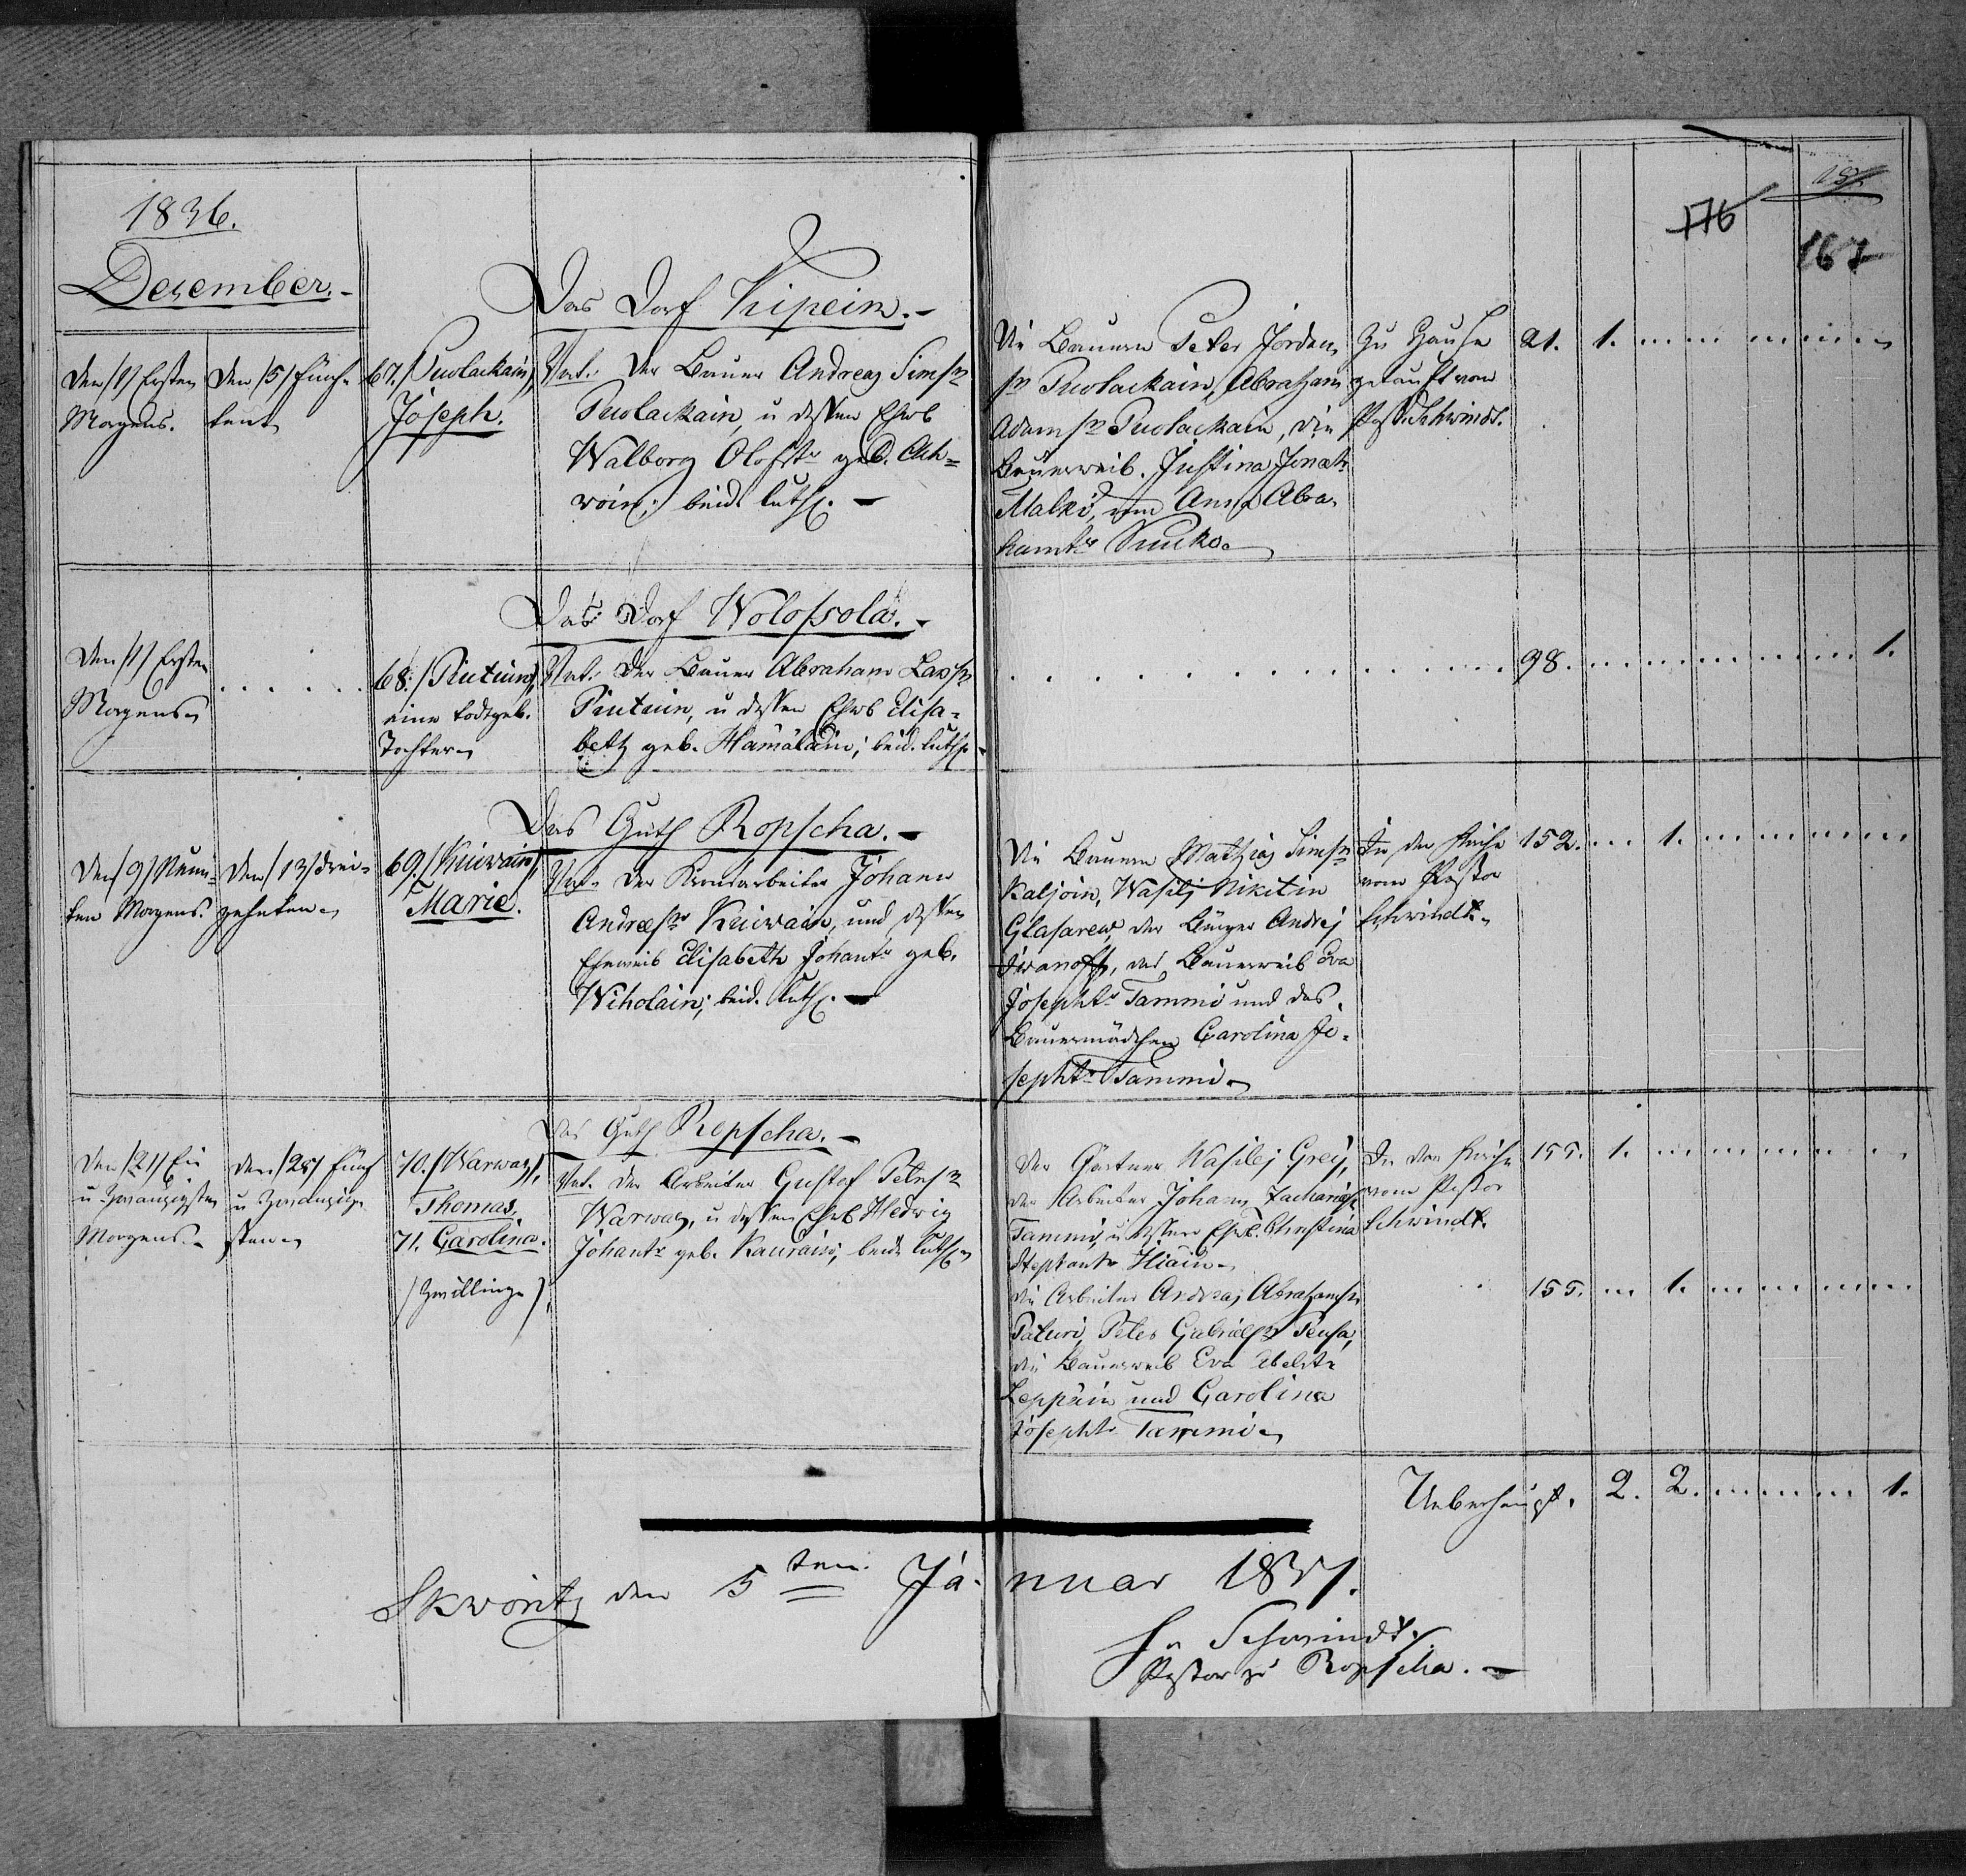 1836.
December.
Das Dorf Kipein.
den /1/ Ersten
Morgens.
den /5/ fünf-
ten
67. /Puolackain/,
Joseph.
Vat. der Bauer Andreas Sims n
Puolackain, u dessen Ehwb
Walborg Olofstr geb. Ach=
woin; beide luth.
Die Bauern Peter Jordan
sn Puolackain, Abraham
Adamsn Puolackain, die
Bauerweib. Justina Jonatr
Malki, und Anna Abra-
hamtr Suuko.
Zu Hause
getauft vom
Past. Schwindt.
21. 1.
Das Dorf Wolossola.
den /1/ Ersten
Morgens
68. /Piutuin/,
eine todtgeb.
Tochter
Vat. der Bauer Abraham Larsn
Piutuin, u dessen Ehwb Elisa=
beth geb. Hämäläin; beid. luth.
98. 1.
Das Guth Ropscha.
den /9/ Neun-
ten Morgens.
den /13/ drei-
zehnten
69. /Kuiwain/,
Marie.
Vat. der Kronarbeiter Johann
Andreessn Kuiwain, und dessen
Eheweib Elisabeth Johantr geb.
Wiholain; beid. luth.
Die Bauern Mathias Simsn
Kaljoin, Wasilj Nikitin
Glasarew, der Bürger Andrej
Iwanoff, das Bauerweib Eva
Josephtr Tammi und das
Bauermädchen Carolina Jo-
sephtr Tammi
In der Kirche
vom Pastor
Schwindt
152. 1.
Das Guth Ropscha.
den /21/ Ein
u Zwanzigsten
Morgens
den /25/ fünf
u Zwanzig-
sten
70. /Warwas/,
Thomas,
71. Carolina.
/Zwillinge/,
Vat. der Arbeiter Gustof Petersn
Warwas, u dessen Ehwb Hedwig
Johantr geb. Kaurain; beide luth.
Der Gärtner Wasilej Grej,
der Arbeiter Johann Zacharias
Tammi, u dessen Ehwb. Christina
Stephantr Hiäin
die Arbeiter Andreas Abrahamsn
Paturi, Peter Gabrielsn Teusa,
die Bauerweib Eva Abelstr
Leppäin und Carolina
Josephtr Tammi
In der Kirche
vom Pastor
Schwindt.
155. 1.
155. 1.
Ueberhaupt. 2. 2. 1.
Skworitz den 5 ten Januar 1837.
Schwindt.
Pastor zu Ropscha.
176
167